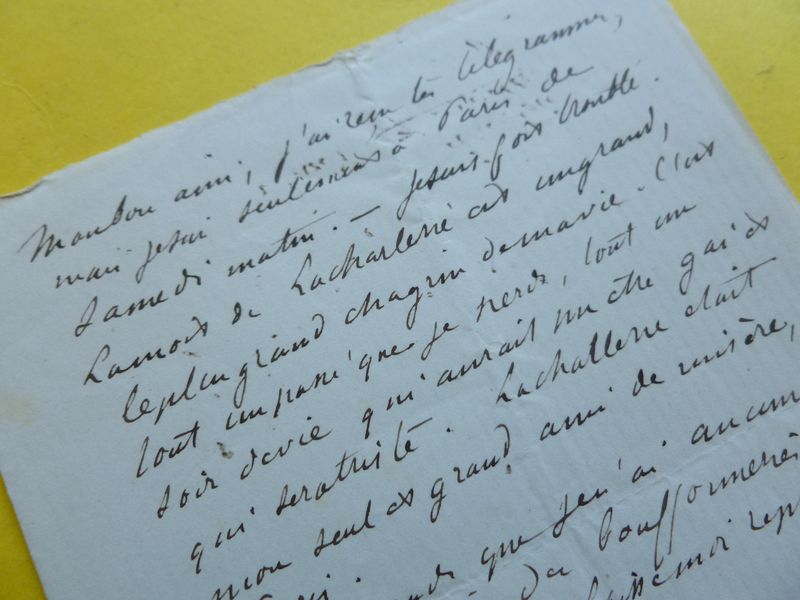 Mon bon ami, j'ai reçu tes télégrammes,
mais je suis seulement à Paris de
Samedi matin. — Je suis fort troublé.
La mort de Lacharlerie est un grand,
le plus grand chagrin de ma vie. C'est
tout un passé que je perds, tout un
soir de vie qui aurait pu être gai et
qui sera triste. Lacharlerie était
mon seul et grand ami de misère,
que je n'ai aucun
bouffonneries
laisse moi